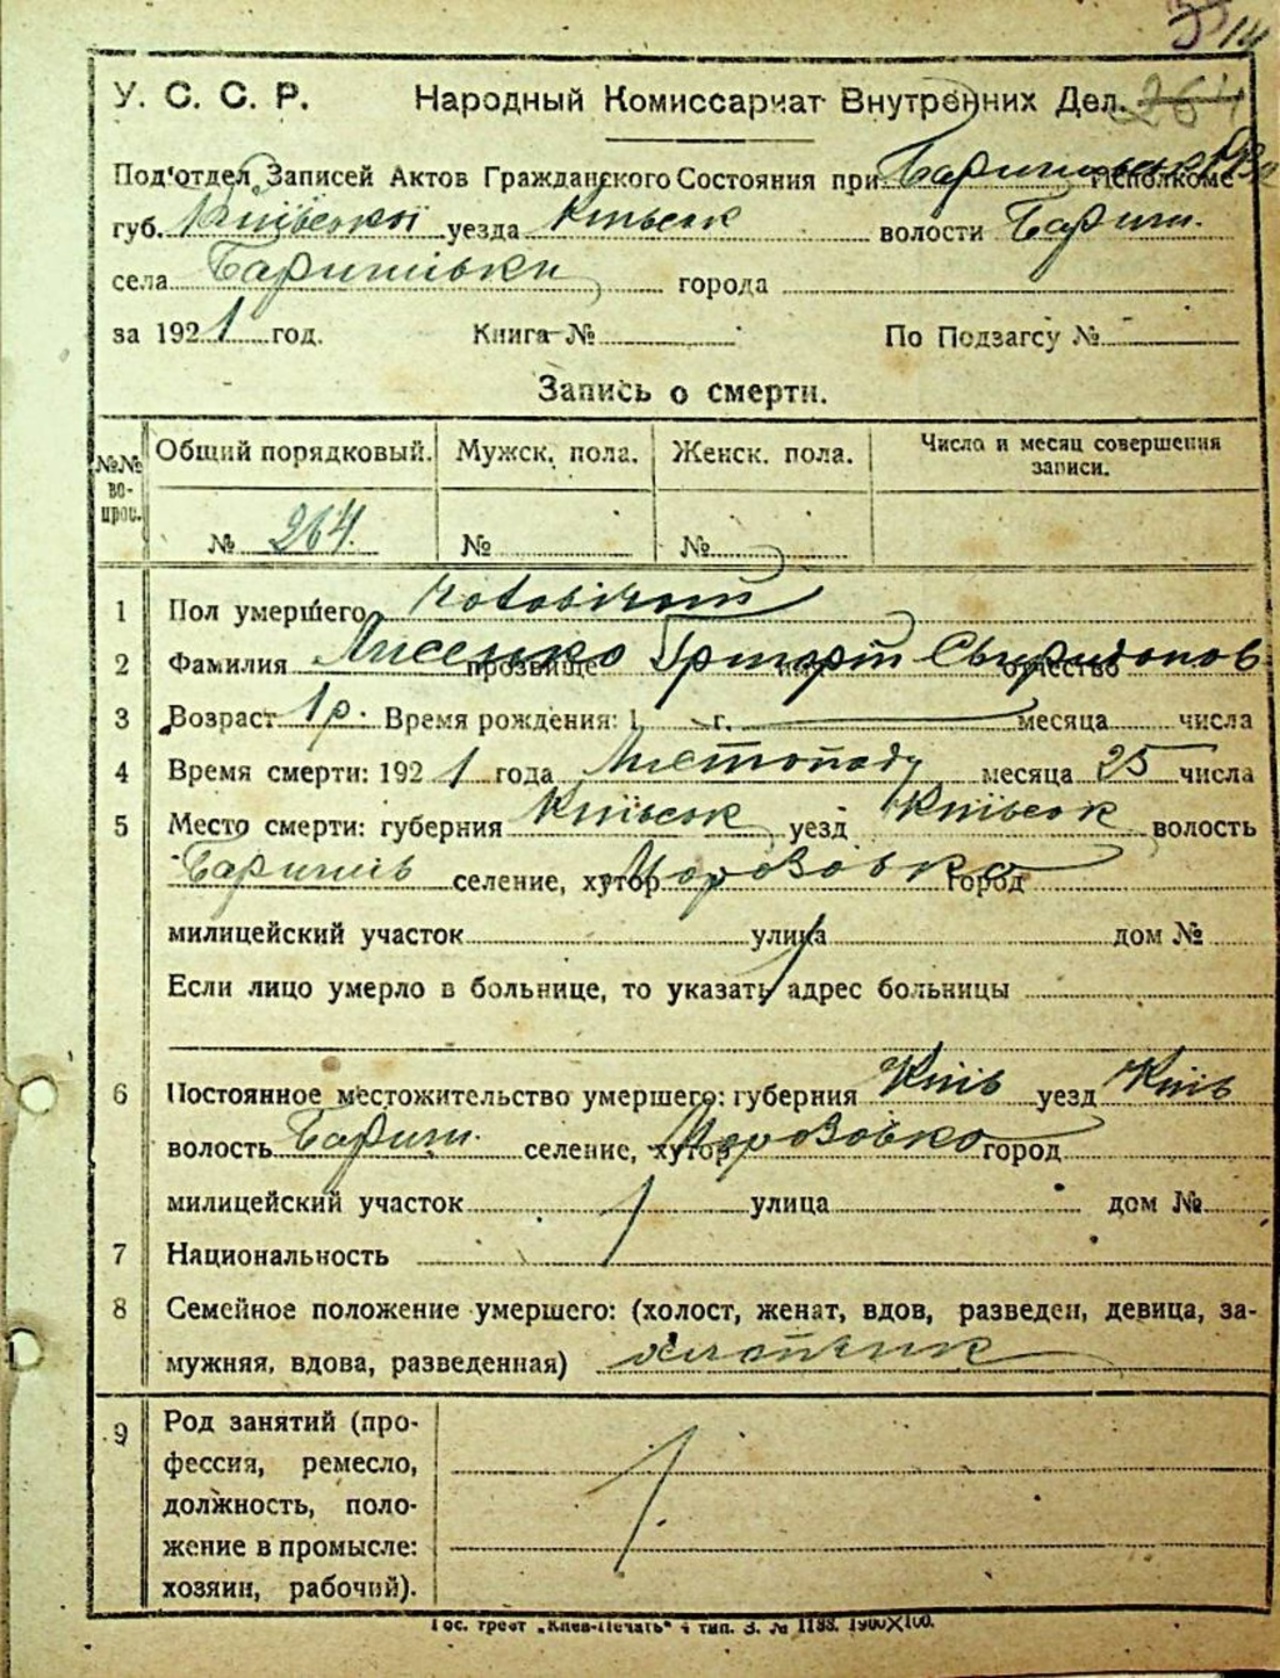 14
У. С. С. Р. Народный Комиссариат Внутренних Дел. 264
Под'отдел Записей Актов Гражданского Состояния при Исполкоме
губ. Київської уезда Київськ волости Бариш.
села Баришівки города
за 1921 год. Книга № По Подзагсу №
Запись о смерти.
№№ вопрос. Общий порядковый. Мужск. пола. Женск. пола. Число и месяц совершения записи.
№ 264. № №
1 Пол умершего чоловічот
2 Фамилия Лисенко прозвище Григорій имя Свиридонов отчество
3 Возраст 1 р. Время рождения: 1 г. месяца числа
4 Время смерти: 1921 года Листопаду месяца 25 числа
5 Место смерти: губерния Київськ уезд Київськ волость
Баришів селение, хутор Морозовка город
милицейский участок улица дом №
Если лицо умерло в больнице, то указать адрес больницы
6 Постоянное местожительство умершего: губерния Київ уезд Київ
волость Бариш. селение, хутор Морозовка город
милицейский участок улица дом №
7 Национальность
8 Семейное положение умершего: (холост, женат, вдов, разведен, девица, за-
мужняя, вдова, разведенная) хлопчик
9 Род занятий (про-
фессия, ремесло,
должность, поло-
жение в промысле:
хозяин, рабочий).
Гос. трест „Киев-Печать“ 4 тип. З. № 1188. 1900X100.